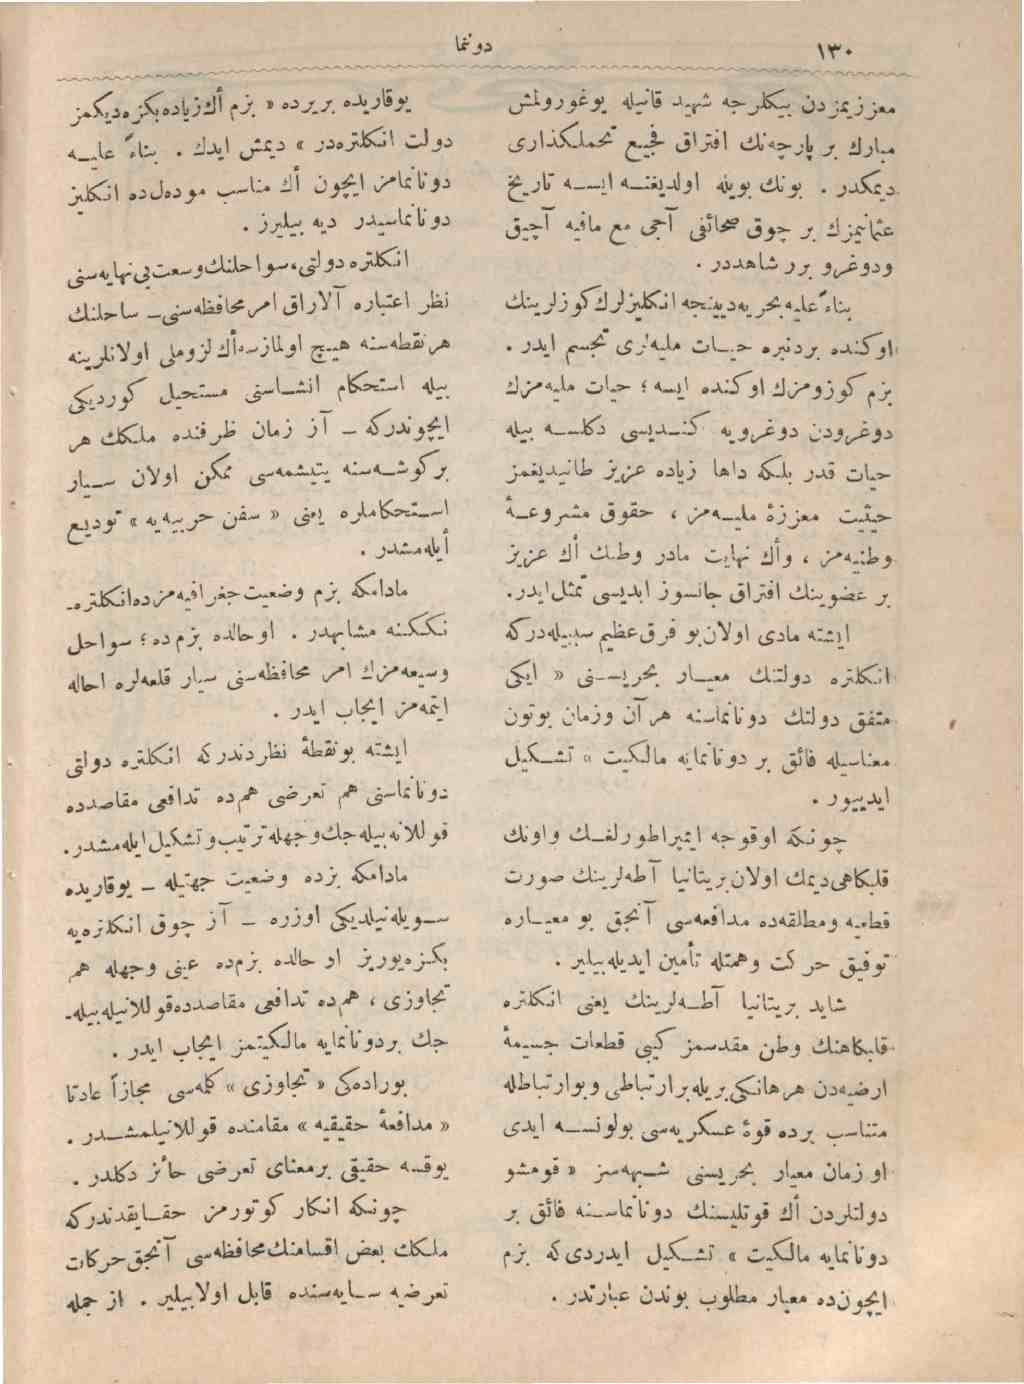 ١٣٠
دوننما
معززیمزدن بیكلرجه شهید قانیله یوغورولمش
مبارك بر پارچه‌نك افتراق فجیع تحملكذاری
دیمكدر . بونك بویله اولدیغنه ایسه تاریخ
عثمانیمزك بر چوق صحائفی آجی مع مافیه آچیق
ودوغرو برر شاهددر .
بناءً علیه بحریه‌دیینجه انكلیزلرك كوزلرینك
اوكنده بردنبره حیات ملیه‌لری تجسم ایدر .
بزم كوزومزك اوكنده ایسه ؛ حیات ملیه‌مزك
دوغرودن دوغرویه كندیسی دكلسه بیله
حیات قدر بلكه داها زیاده عزیز طانیدیغمز
حیثیت معززهٔ ملیه‌مز ، حقوق مشروعهٔ
وطنیه‌مز ، وأك نهایت مادر وطنك أك عزیز
بر عضوینك افتراق جانسوز ابدیسی تمثل ایدر.
ایشته مادی اولان بو فرق عظیم سببیله‌دركه
انكلتره دولتنك معیار بحریسنی « ایكی
متفق دولتك دونانماسنه هر آن وزمان بوتون
معناسیله فائق بر دونانمایه مالكیت » تشكیل
ایدییور .
چونكه اوقوجه ایمپراطورلغك واونك
قلبكاهی دیمك اولان بریتانیا آطه‌لرینك صورت
قطعیه ومطلقه‌ده مدافعه‌سی آنجق بو معیاره
توفیق حركت وهمتله تأمین ایدیله‌بیلیر .
شاید بریتانیا آطه‌لرینك یعنی انكلتره
قلبكاهنك وطن مقدسمز كبی قطعات جسیمهٔ
ارضیه‌دن هر هانكی بریله برارتباطی وبوارتباطله
متناسب برده قوهٔ عسكریه‌سی بولونسه ایدی
او زمان معیار بحریسنی شبهه‌سز « قومشو
دولتلردن أك قوتلیسنك دونانماسنه فائق بر
دونانمایه مالكیت » تشكیل ایدردی كه بزم
ایچون‌ده معیار مطلوب بوندن عبارتدر .
یوقاریده بریرده « بزم أك زیاده بكزه‌دیكمز
دولت انكلتره‌در » دیمش ایدك . بناءً علیه
دونانمامز ایچون أك مناسب موده‌ل‌ده انكلیز
دونانماسیدر دیه بیلیرز .
انكلتره دولتی، سواحلنك وسعت بی‌نهایه‌سنی
نظر اعتباره آلاراق امر محافظه‌سنی ــ ساحلنك
هرنقطه‌سنه هیچ اولمازسه أك لزوملی اولانلرینه
بیله استحكام انشاسنی مستحیل كوردیكی
ایچوندركه ــ آز زمان ظرفنده ملكك هر
بركوشه‌سنه یتیشمه‌سی ممكن اولان سیار
استحكاملره یعنی « سفن حربیه‌یه » تودیع
أیله‌مشدر .
مادامكه بزم وضعیت جغرافیه‌مزده انكلتره-
نككنه مشابهدر . اوحالده بزم ده ؛ سواحل
وسیعه‌مزك امر محافظه‌سنی سیار قلعه‌لره احاله
ایتمه‌مز ایجاب ایدر .
ایشته بونقطهٔ نظردندركه انكلتره دولتی
دونانماسنی هم تعرضی هم‌ده تدافعی مقاصدده
قوللانه بیله‌جك وجهله ترتیب وتشكیل ایله‌مشدر.
مادامكه بزده وضعیت جهتیله ــ یوقاریده
سویله‌نیلدیكی اوزره ــ آز چوق انكلتره‌یه
بكزه‌یوریز او حالده بزم‌ده عینی وجهله هم
تجاوزی ، هم‌ده تدافعی مقاصدده‌قوللانیله‌بیله-
جك بردونانمایه مالكیتمز ایجاب ایدر .
بوراده‌كی « تجاوزی » كلمه‌سی مجازاً عادتا
« مدافعهٔ حقیقیه » مقامنده قوللانیلمشدر .
یوقسه حقیقی برمعنای تعرضی حائز دكلدر .
چونكه انكار كوتورمز حقایقدندركه
ملكك بعض اقسامنك محافظه‌سی آنجق حركات
تعرضیه سایه‌سنده قابل اولابیلیر . از جمله